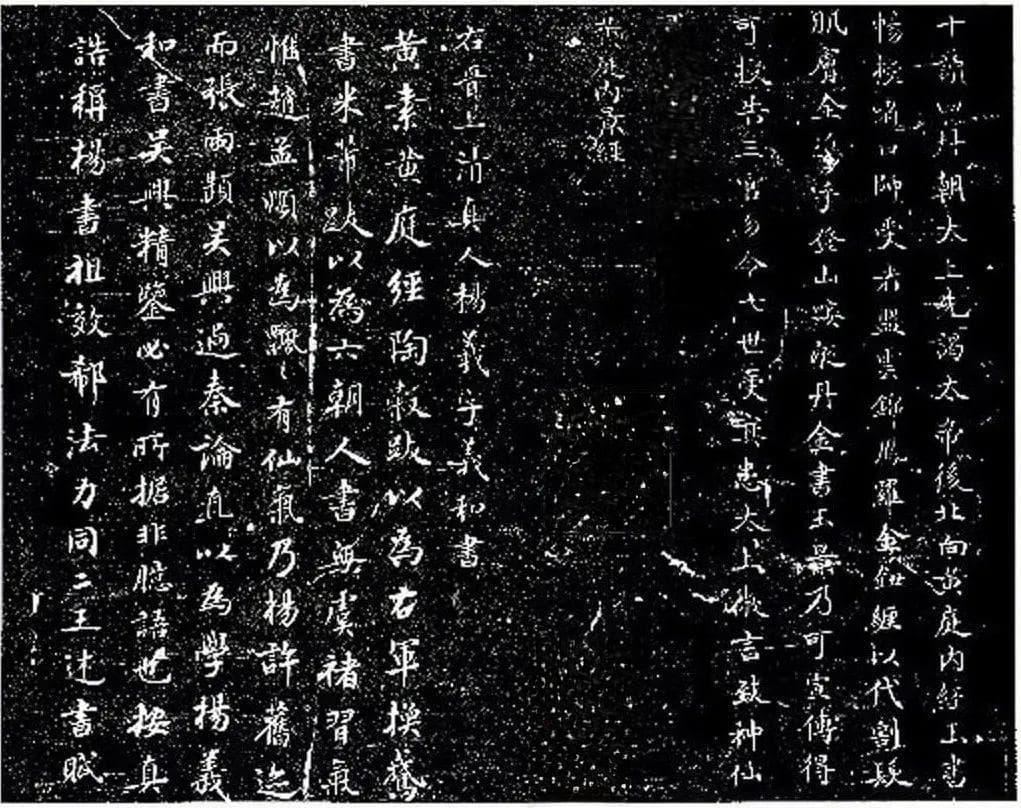 十讀四拜朝太上先謁太帝後北向黃庭內經玉書
暢授者曰師受者盟雲錦鳳羅金鈕纏以代割髮
肌膚全攜手登山歃液丹金書玉景乃可宣傳得
可授告三官勿令七世受冥患太上微言致神仙
黃庭內景經
右晉上清真人楊羲字羲和書
黃素黃庭經陶穀跋以為右軍換鵞
書米芾跋以為六朝人書無虞褚習氣
惟趙孟頫以為飄〻有仙氣乃楊許舊迹
而張雨題吳興過秦論直以為學楊羲
和書吳興精鑒必有所据非臆語也按真
誥稱楊書祖效郗法力同二王述書賦